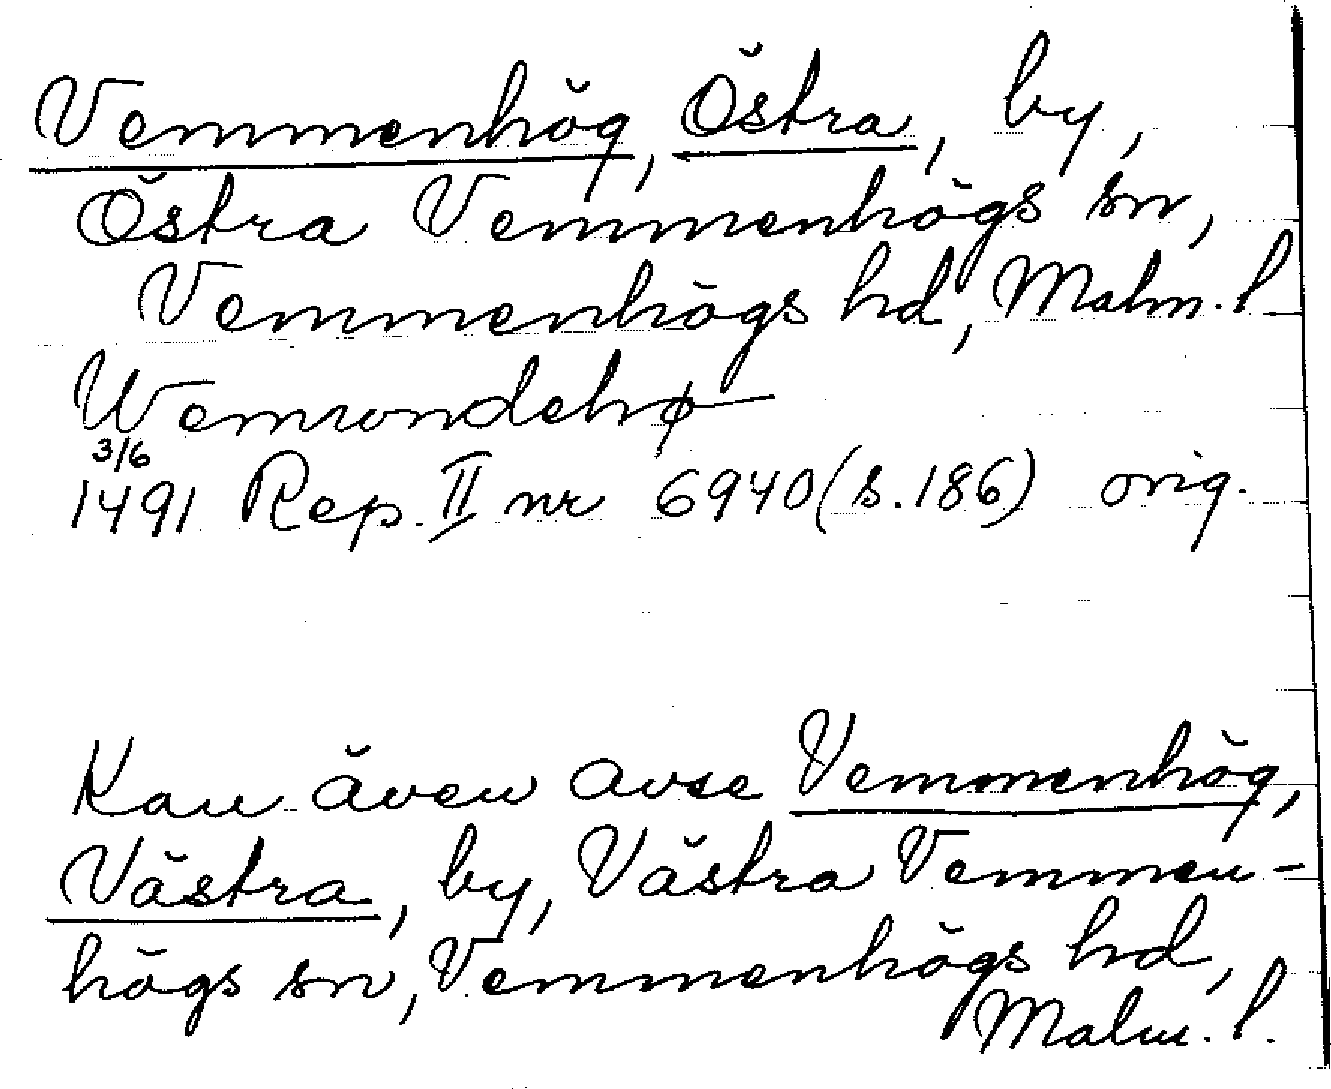 Vemmenhög, Östra, by,
Östra Vemmenhögs sn,
Vemmenhögs hd, Malm. l.
Wemondehø
3/6
1491 Rep. II nr 6940 (s. 186) orig.
Kan även avse Vemmenhög,
Västra, by, Västra Vemmen-
högs sn, Vemmenhögs hd,
Malm. l.